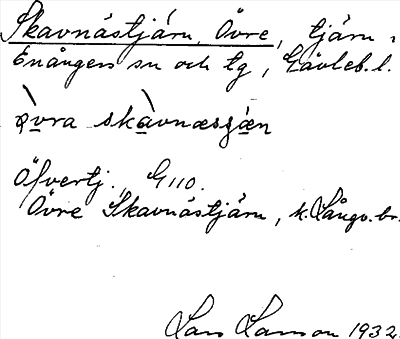 Skavnästjärn, Övre, tjärn i
Enångers sn och tg, Gävleb. l.
øvra skavnæsʃæn
Öfvertj., G110.
Övre Skavnästjärn, k. Långv. br.
Lars Larsson 1932.